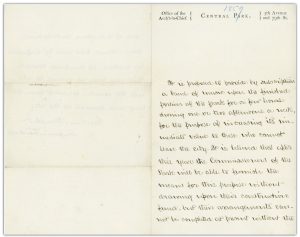 1859
Office of the
Archit-in-Chief { CENTRAL PARK, } 5th Avenue
and 79th St.
It is proposed to provide by subscription
a band of music upon the finished
portion of the park for a few hours
during one or two afternoons a week,
for the purpose of increasing its im-
mediate value to those who cannot
leave the city. It is believed that after
this year the Commissioners of the
Park will be able to provide the
means for this purpose without
drawing upon their construction
fund but their arrangements can-
not be completed at present without the